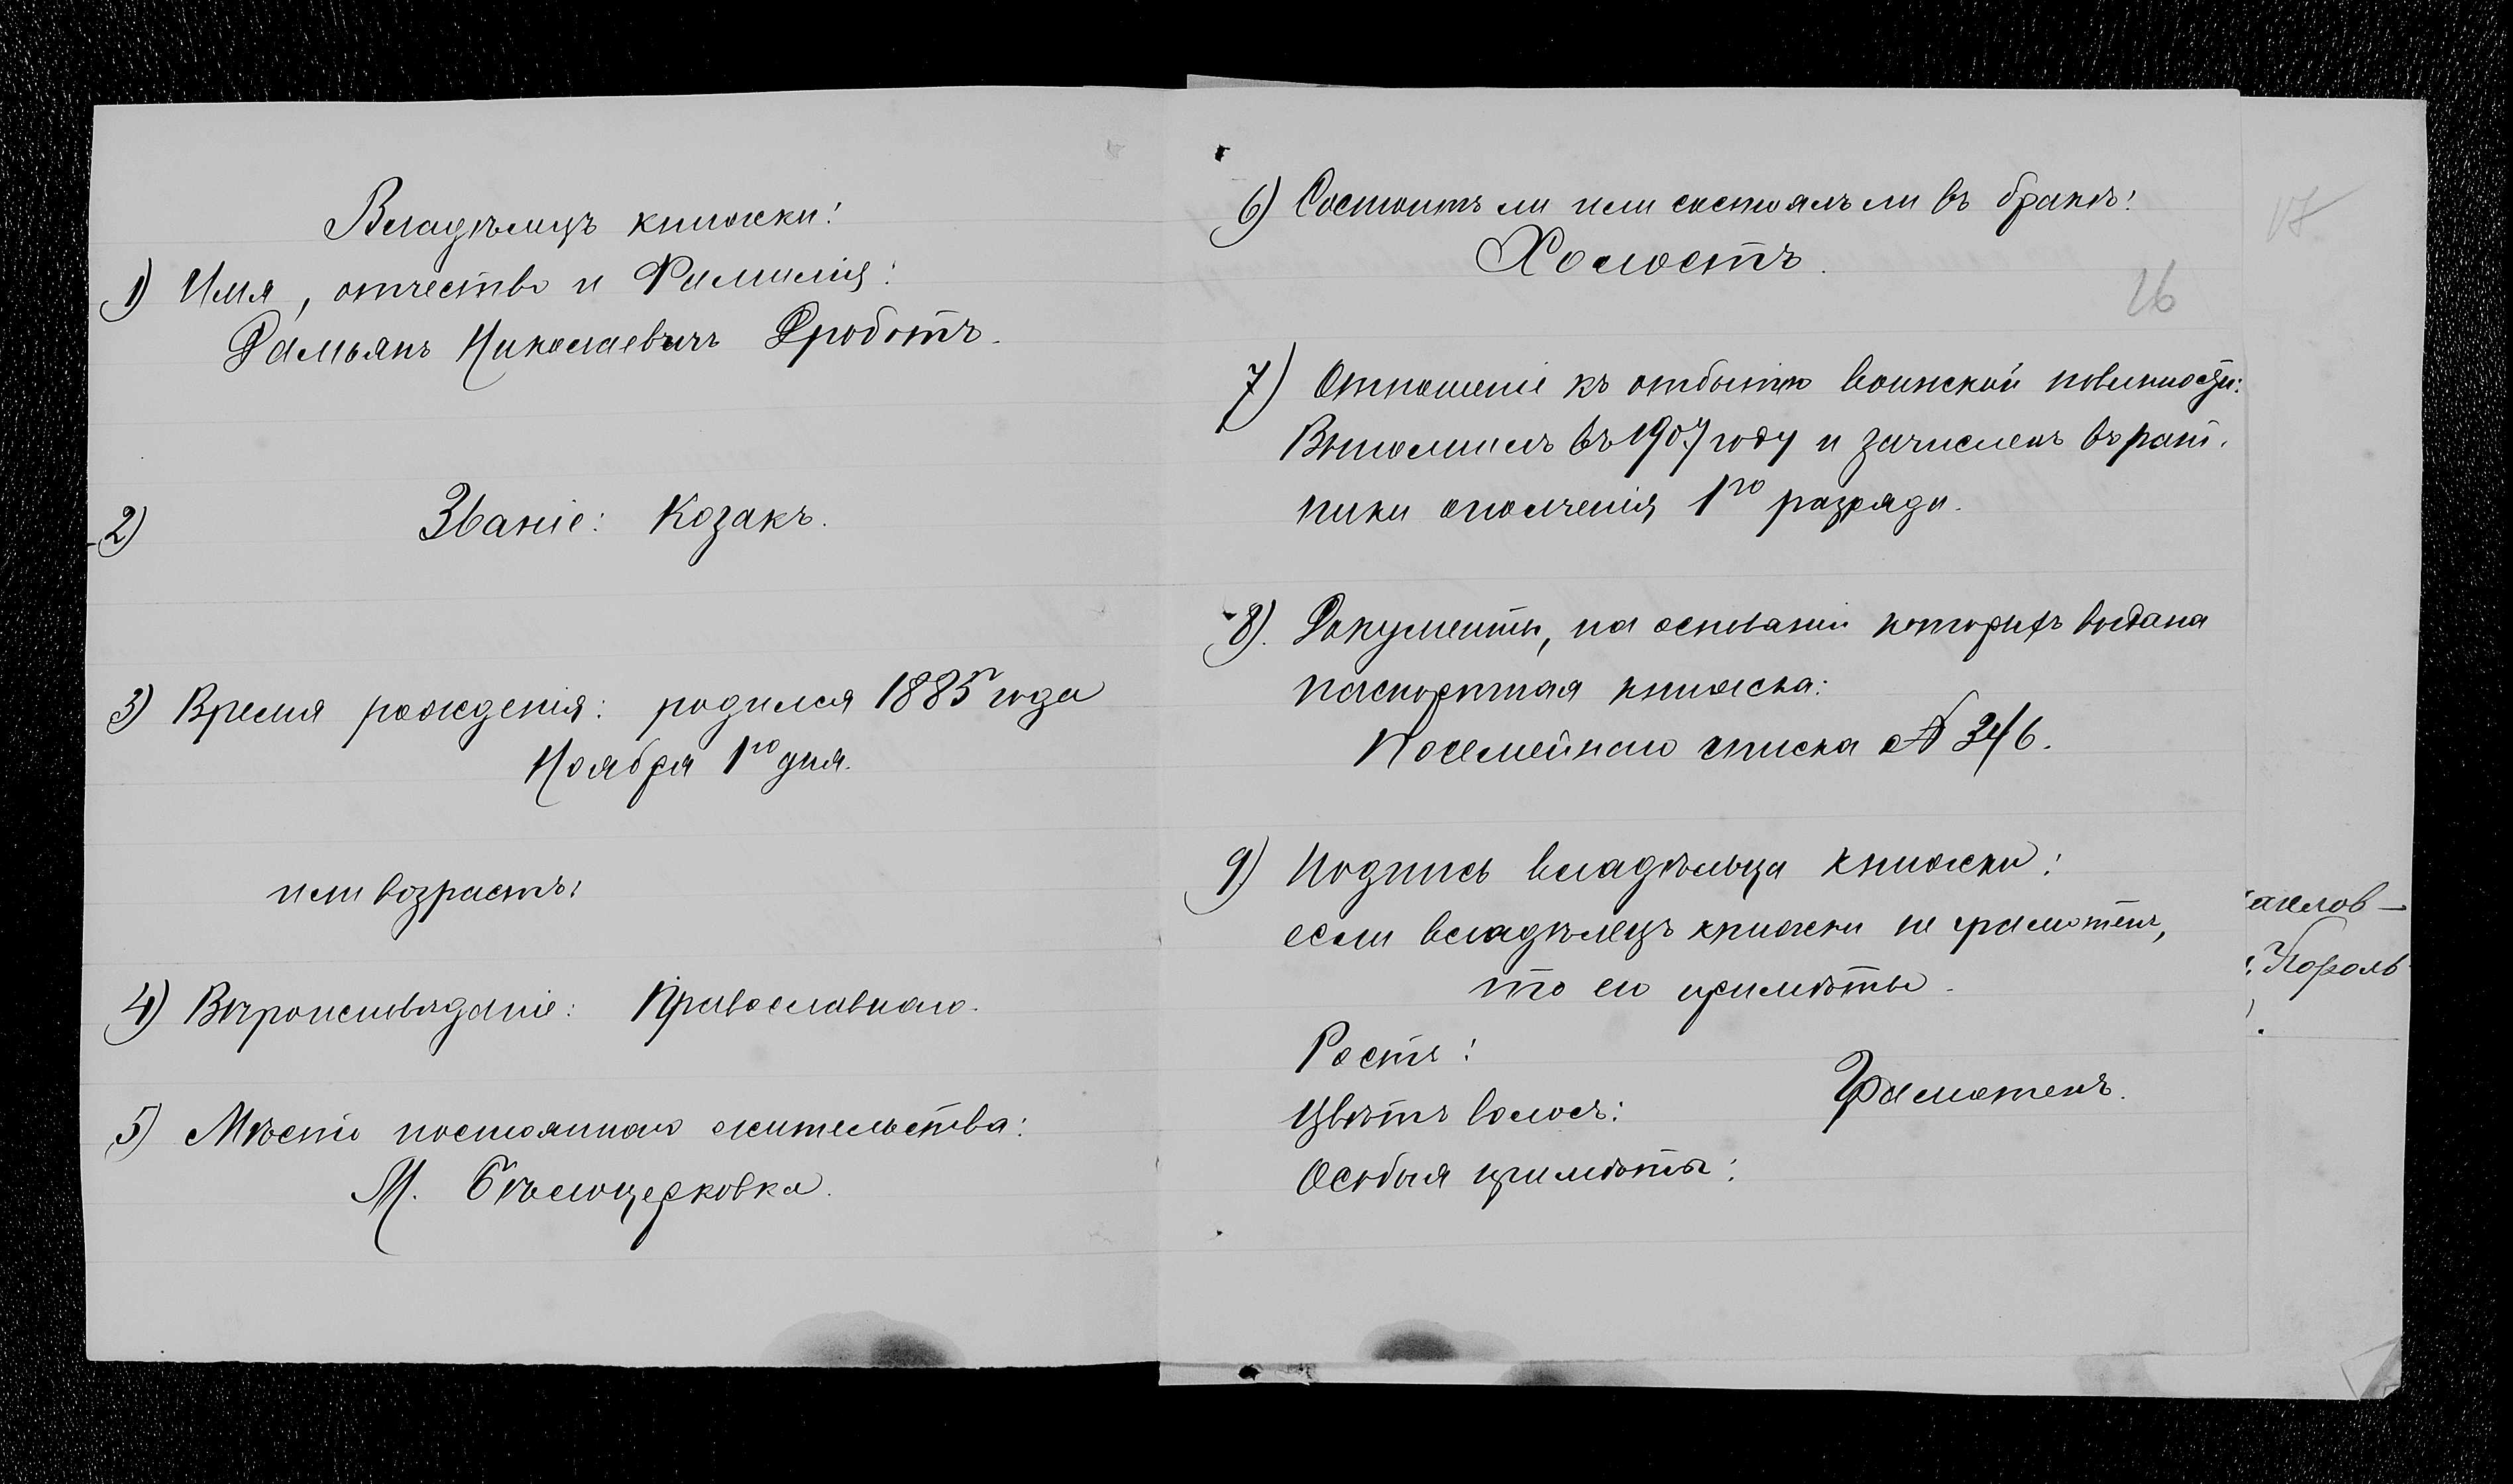 Владѣлецъ книжки:
1) Имя, отчество и Фамилія:
Дамьянъ Николаевичъ Дроботъ.
2) Званіе: Козакъ.
3) Время рожденія: родился 1885 года
Ноября 1го дня.
или возрастъ:
4) Вѣроисповѣданіе: Православнаго.
5) Мѣсто постояннаго жительства:
М. Бѣлоцерковка.
6) Состоитъ ли или состоялъ ли въ бракѣ:
Холостъ.
7) Отношеніе къ отбытію воинской повинности:
Выполнилъ въ 1907 году и зачисленъ въ рат.
ники ополченія 1го разряда.
8). Документы, на основаніи которихъ выдана
паспортная книжка:
Посемейнаго списка № 346.
9) Подпись владѣльца книжки:
если владѣлецъ книжки не грамотенъ,
то его примѣты.
Ростъ:
Цвѣтъ волосъ:
Грамотенъ.
Особыя примѣты:
17
26
Король